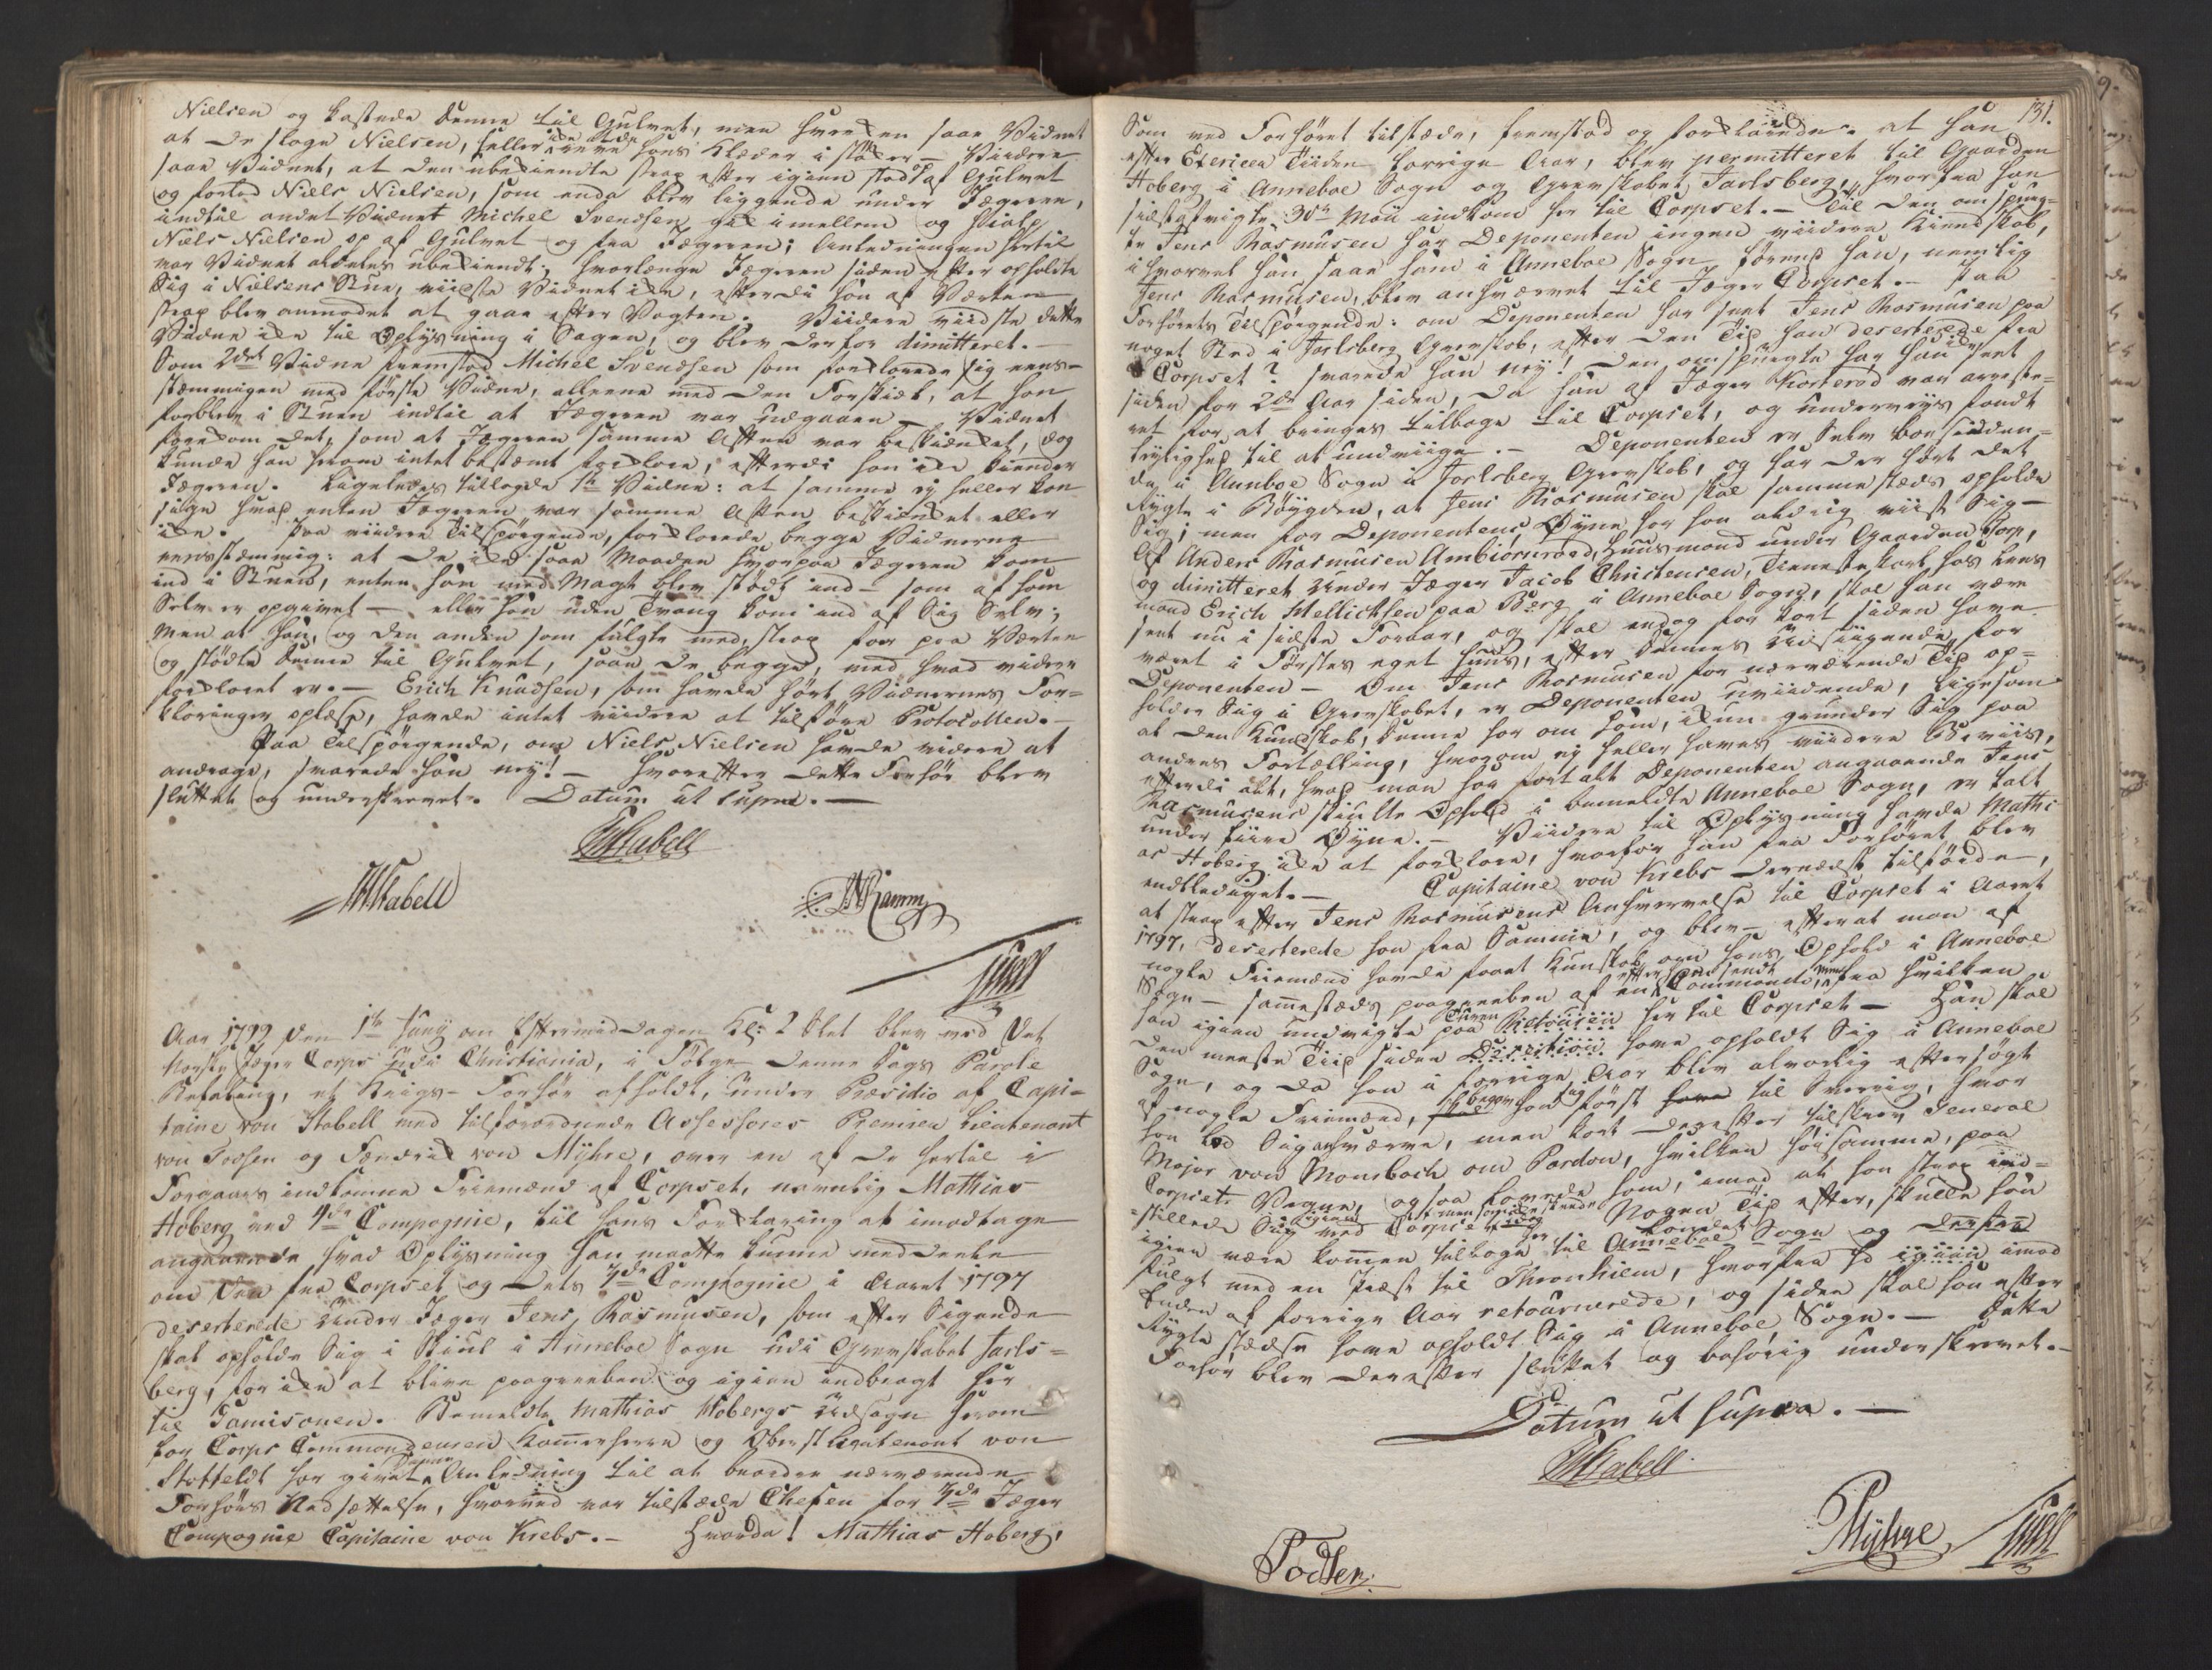 Nielsen og kastede denne til Gulvet, men hverken saae Vidnet
at de sloge Nielsen, heller ikke at de reve hans Klæder i støkker – Viidere
saae Vidnet, at den ubekiendte strax efter igien stod op af Gulvet
og forlod Niels Nielsen, som enda blev liggende under Jægeren,
indtil andet Vidnet Michel Svendsen gik imellem og hialp
Niels Nielsen op af Gulvet og fra Jægeren; Anledningen hertil
var Vidnet aldeles ubekiendt; hvorlænge Jægeren siden efter opholdte
sig i Nielsens Stue, viidste Vidnet ikke, efterdi han af Værten
strax blev anmodet at gaae efter Vagten. Viidere viidste dette
Vidne ikke til Oplysning i Sagen, og blev derfor dimitteret. –
Som 2det Vidne fremstod Michel Svendsen som forklarede sig eens-
stemmigen med første Vidne, alleene med den Forskiæl, at han
forblev i Stuen indtil at Jægeren var udgaaen – Vidnet
forekom det, som at Jægeren samme Aften var beskienket, dog
kunde han herom intet bestemt forklare, efterdi han ikke kiender
Jægeren. Ligeledes tillagde 1te Vidne: at samme ej heller kan
sige hvad enten Jægeren var samme Aften beskienket eller
ikke. Paa viidere Tilspørgende, forklarede begge Vidnerne
eensstemmig: at de ikke saae Maaden hvorpaa Jægeren kom
ind i Stuen, enten han med Magt blev stødt ind – som af ham
Selv er opgivet – eller han uden Tvang kom ind af Sig Selv;
Men at han, og den anden som fulgte med, strax foer paa Værten
og stødte denne til Gulvet, saae de begge, med hvad videre
forklaret er. – Erich Knudsen, som havde hørt Vidnernes For-
klaringer oplæst, havde intet viidere at tilføre Protocollen. –
Paa Tilspørgende, om Niels Nielsen havde videre at
andrage, svarede han nej! – Hvorefter dette Forhør blev
sluttet og underskrevet. Datum ut supra. –
Stabell
Stabell
N Ramm
Aar 1799 den 1te Junij om Eftermiddagen Kl: 2 Slet blev ved Det
Norske Jæger Corps udi Christiania, i Følge denne Dags Parole
Befaling, et Krigs-Forhør afholdt, under Præsidio af Capi-
taine von Stabell med tilforordnede Assessores Premier Lieutenant
von Todsen og Fændrik von Mÿhre, over en af de hertil i
Forgaars indkomne Friemænd af Corpset, navnlig Mathias
Hoberg ved 4de Compagnie, til hans Forklaring at imodtage
angaaende hvad Oplysning han maatte kunne meddeele
om den fra Corpset og dets 4de Compagnie i Aaret 1797
deserterede Under Jæger Jens Rasmusen, som efter Sigende
skal opholde Sig i Skiul i Anneboe Sogn udi Grevskabet Jarls-
berg, for ikke at blive paagreeben og igien indbragt her
til Garnisonen. Bemeldte Mathias Hobergs Udsagn herom
for Corps Commandeuren Kammerherre og Oberstlieutenant von
Stoffeldt har givet Denne Anledning til at beordre nærværende
Forhørs Nedsættelse, hvorved var tilstæde Chefen for 4de Jæger
Compagnie Capitaine von Krebs. – Hvorda! Mathias Hoberg,
131.
Som ved Forhøret tilstæde, fremstod og forklarede: at han
efter Exerceer Tiiden forrige Aar, blev permitteret til Gaarden
Hoberg i Anneboe Sogn og Grevskabet Jarlsberg, hvorfra han
sidstafvigte 30te Maii indkom her til Corpset. – Til den omspurg-
te Jens Rasmusen har Deponenten ingen viidere Kiendskab,
i hvorvel han saae ham i Anneboe Sogn førend han, nemlig
Jens Rasmusen, blev anhværvet til Jæger Corpset. – Paa
Forhørets Tilspørgende: om Deponenten har seet Jens Rasmusen paa
noget Sted i Jarlsberg Grevskab, efter den Tiid han deserterede fra
Corpset? svarede han nej! Den omspurgte har han ikke seet
siden for 2de Aar siden, da han af Jæger Korterød var arreste-
ret for at bringes tilbage til Corpset, og underveys fandt
Leylighed til at undviige. – Deponenten er Selv boesidden-
de i Annboe Sogn i Jarlsberg Grevskab, og har der hørt det
Rygte i Bøygden, at Jens Rasmusen skal sammestæds opholde
Sig; men for Deponentens Øyne har han aldrig viist Sig –
Af Anders Rasmusen Ambiørnrød, Huusmand under Gaarden Horn,
og dimitteret Under Jæger Jacob Christensen, Tienestekarl hos Lens
mand Erich Mellichsen paa Berg i Anneboe Sogn, skal han være
seet nu i sidste Foraar, og skal endog for kort siden have
været i Førstes eget Huus, efter dennes Udsiigende for
Deponenten – Om Jens Rasmusen for nærværende Tiid op-
holder Sig i Grevskabet, er Deponenten uviidende, ligesom
at den Kundskab, denne har om ham, ikkun grunder Sig paa
andres Fortælling, hvorom ej heller haves viidere Beviis,
efterdi alt, hvad man har fortalt Deponenten angaaende Jens
Rasmusens skiulte Ophold i bemeldte Anneboe Sogn, er talt
under fiire Øyne. – Viidere til Oplysning havde Mathi
as Hoberg ikke at forklare, hvorfor han fra Forhøret blev
entlediget. – Capitaine von Krebs dernædst tilføyede,
at strax efter Jens Rasmusens Anhvervelse til Corpset i Aaret
1797, deserterede han fra Samme, og blev – efterat man af
nogle Friemænd havde faaet Kundskab om hans Ophold i Anneboe
Sogn – sammestæds paagreeben af en efter ham sendt Commando, men fra hvilken
han igien undvigte paa Turen Retouren her til Corpset – Han skal
den meeste Tiid siden Desertion have opholdt Sig i Anneboe
Sogn, og da han i forrige Aar blev alvorlig eftersøgt
af nogle Friemænd, begav han sig først til Sverrig, hvor
han lod Sig anhværve, men kort derefter tilskrev General
Major von Mansbach om Pardon, hvilken høisamme, paa
Corpsets Vegne, ogsaa lovede ham, imod at han strax ind-
stillede Sig ved Corpset igien. Nogen Tiid efter, skulle han
igien være kommen tilbage til Anneboe Sogn og derfra
fulgt med en Præst til Thronhiem, hvorfra hand igien imod
Enden af forrige Aar retournerede, og siden skal han efter
Rygte stædse have opholdt Sig i Anneboe Sogn. – Dette
Forhør blev derefter sluttet og behørig underskrevet. –
Datum ut supra. –
Stabell
Todsen.
Mÿhre